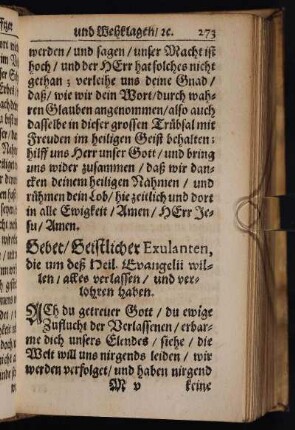 und Weßklagen/ ꝛc. 273
werden/ und sagen/ unser Macht ist
hoch/ und der HErr hat solches nicht
gethan; verleihe uns deine Gnad/
daß/ wie wir dein Wort/ durch wah-
ren Glauben angenommen/ also auch
dasselbe in dieser grossen Trübsal mit
Freuden im heiligen Geist behalten:
hilff uns Herr unser Gott/ und bring
uns wider zusammen/ daß wir dan-
cken deinem heiligen Nahmen/ und
rühmen dein Lob/ hie zeitlich und dort
in alle Ewigkeit/ Amen/ HErr Je-
su/ Amen.
Gebet/ Geistlicher Exulanten,
die um deß Heil. Evangelii wil-
len/ alles verlassen/ und ver-
lohren haben.
ACh du getreuer Gott/ du ewige
Zuflucht der Verlassenen/ erbar-
me dich unsers Elendes/ siehe/ die
Welt will uns nirgends leiden/ wir
werden verfolget/ und haben nirgend
M v keine